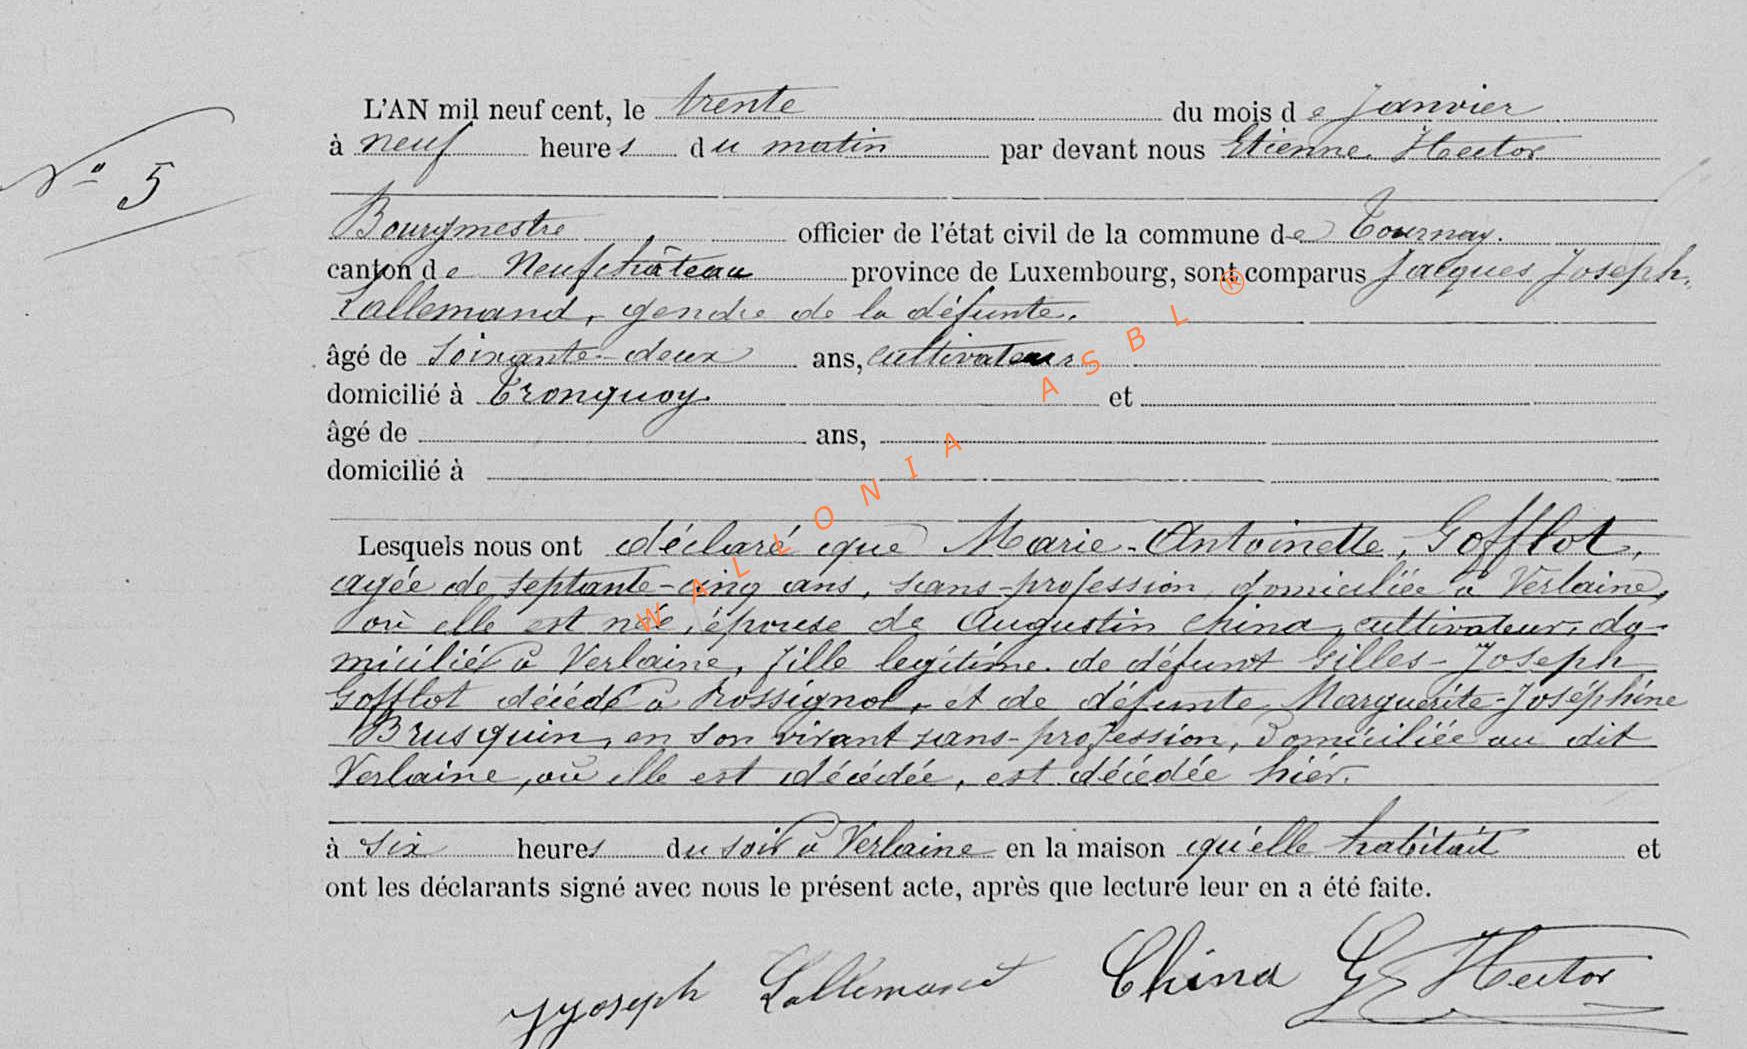 L'AN mil neuf cent, le trente du mois de Janvier
N° 5
à neuf heures du matin par devant nous Etienne Hector
Bourgmestre officier de l'état civil de la commune de Tournay.
canton de Neufchâteau province de Luxembourg, sont comparus Jacques Joseph
Lallemand, gendre de la défunte,
âgé de soixante-deux ans, cultivateur
domicilié à Tronquoy. et
âgé de ans,
domicilié à
Lesquels nous ont déclaré que Marie-Antoinette, Gofflot,
agée de septante-cinq ans, sans-profession, domiciliée à Verlaine,
où elle est née, épouse de Augustin China, cultivateur, do-
micilié à Verlaine, fille legitime de défunt Gilles-Joseph
Gofflot décédé à Rossignol, et de défunte Marguerite-Joséphine
Brusquin, en son vivant sans-profession, domiciliée au dit
Verlaine, où elle est décédée, est décédée hier.
à six heures du soir à Verlaine en la maison qu'elle habitait et
ont les déclarants signé avec nous le présent acte, après que lecture leur en a été faite.
JJoseph Lallemand China E Hector
WALLONIA ASBL ®